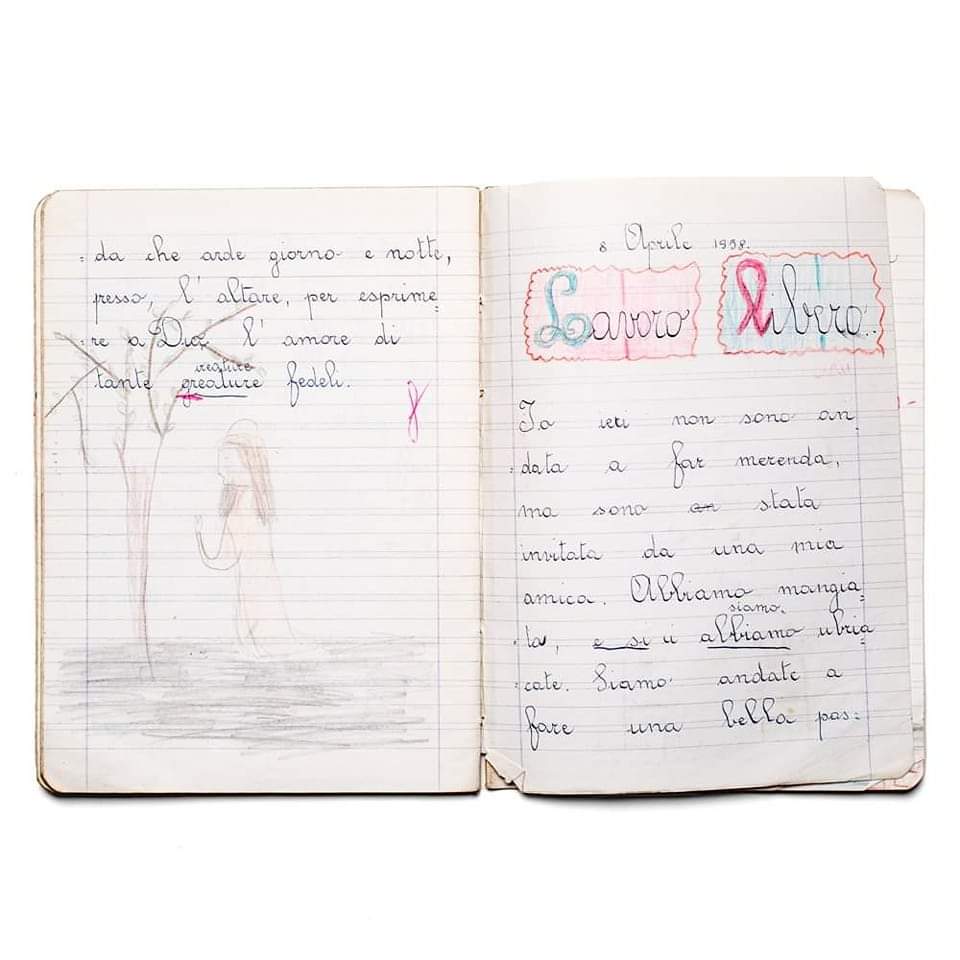 : da che arde giorno e notte,
presso, l' altare, per esprime=
: re a Dio, l' amore di
creature
tante greature fedeli.
8
8 Aprile 1958.
Lavoro libero..
Io ieri non sono an
: data a far merenda,
ma sono an stata
invitata da una mia
amica. Abbiamo mangia=
siamo.
: to, e si ci abbiamo ubria
: cate. Siamo andate a
fare una bella pas=